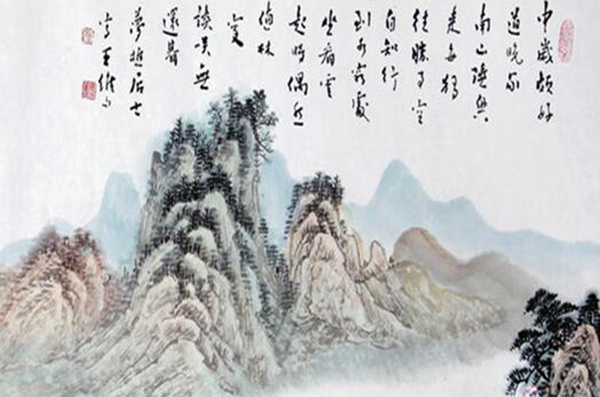 中歲頗好
道晚家
南山陲興
來每獨
往勝事空
自知行
到水窮處
坐看雲
起時偶然
值林
叟
談笑無
還期
夢樵居士
寫王維句